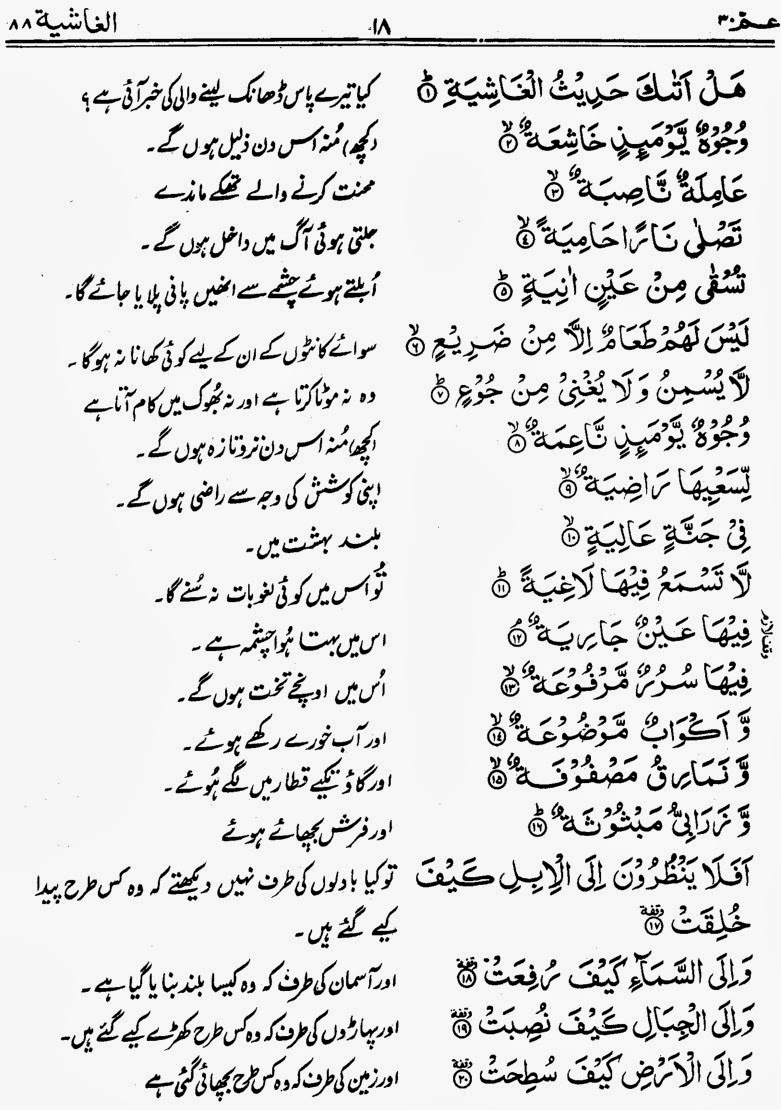 عـم ٣٠ ١٨ الغاشية ٨٨
هَلْ اَتٰىكَ حَدِيْثُ الْغَاشِيَةِ ؕ﴿۱﴾ کیا تیرے پاس ڈھانک لینے والی کی خبر آئی ہے؟
وُجُوْهٌ يَّوْمَىِٕذٍ خَاشِعَةٌ ۙ﴿۲﴾ (کچھ) مُنہ اس دن ذلیل ہوں گے۔
عَامِلَةٌ نَّاصِبَةٌ ۙ﴿۳﴾ محنت کرنے والے تھکے ماندے
تَصْلٰى نَارًا حَامِيَةً ۙ﴿۴﴾ جلتی ہوئی آگ میں داخل ہوں گے۔
تُسْقٰى مِنْ عَيْنٍ اٰنِيَةٍ ؕ﴿۵﴾ اُبلتے ہوئے چشمے سے انھیں پانی پلایا جائے گا۔
لَيْسَ لَهُمْ طَعَامٌ اِلَّا مِنْ ضَرِيْعٍ ۙ﴿۶﴾ سوائے کانٹوں کے ان کے لیے کوئی کھانا نہ ہوگا۔
لَّا يُسْمِنُ وَلَا يُغْنِيْ مِنْ جُوْعٍ ؕ﴿۷﴾ وہ نہ موٹا کرتا ہے اور نہ بُھوک میں کام آتا ہے
وُجُوْهٌ يَّوْمَىِٕذٍ نَّاعِمَةٌ ۙ﴿۸﴾ (کچھ) مُنہ اس دن تروتازہ ہوں گے۔
لِّسَعْيِهَا رَاضِيَةٌ ۙ﴿۹﴾ اپنی کوشش کی وجہ سے راضی ہوں گے۔
فِيْ جَنَّةٍ عَالِيَةٍ ۙ﴿۱۰﴾ بلند بہشت میں۔
لَّا تَسْمَعُ فِيْهَا لَاغِيَةً ؕ﴿۱۱﴾ تُو اُس میں کوئی لغو بات نہ سُنے گا۔
فِيْهَا عَيْنٌ جَارِيَةٌ ۘ﴿۱۲﴾ اس میں بہتا ہُوا چشمہ ہے۔
وقف لازم
فِيْهَا سُرُرٌ مَّرْفُوْعَةٌ ۙ﴿۱۳﴾ اُس میں اونچے تخت ہوں گے۔
وَّ اَكْوَابٌ مَّوْضُوْعَةٌ ۙ﴿۱۴﴾ اور آب خورے رکھے ہوئے۔
وَّ نَمَارِقُ مَصْفُوْفَةٌ ۙ﴿۱۵﴾ اور گاؤ تکیے قطار میں لگے ہُوئے۔
وَّ زَرَابِيُّ مَبْثُوْثَةٌ ؕ﴿۱۶﴾ اور فرش بچھائے ہوئے
اَفَلَا يَنْظُرُوْنَ اِلَى الْاِبِلِ كَيْفَ تو کیا بادلوں کی طرف نہیں دیکھتے کہ وہ کس طرح پیدا
خُلِقَتْ وقفة ﴿۱۷﴾ کیے گئے ہیں۔
وَاِلَى السَّمَآءِ كَيْفَ رُفِعَتْ وقفة ﴿۱۸﴾ اور آسمان کی طرف کہ وہ کیسا بلند بنایا گیا ہے۔
وَاِلَى الْجِبَالِ كَيْفَ نُصِبَتْ وقفة ﴿۱۹﴾ اور پہاڑوں کی طرف کہ وہ کس طرح کھڑے کیے گئے ہیں۔
وَاِلَى الْاَرْضِ كَيْفَ سُطِحَتْ وقفة ﴿۲۰﴾ اور زمین کی طرف کہ وہ کس طرح بچھائی گئی ہے